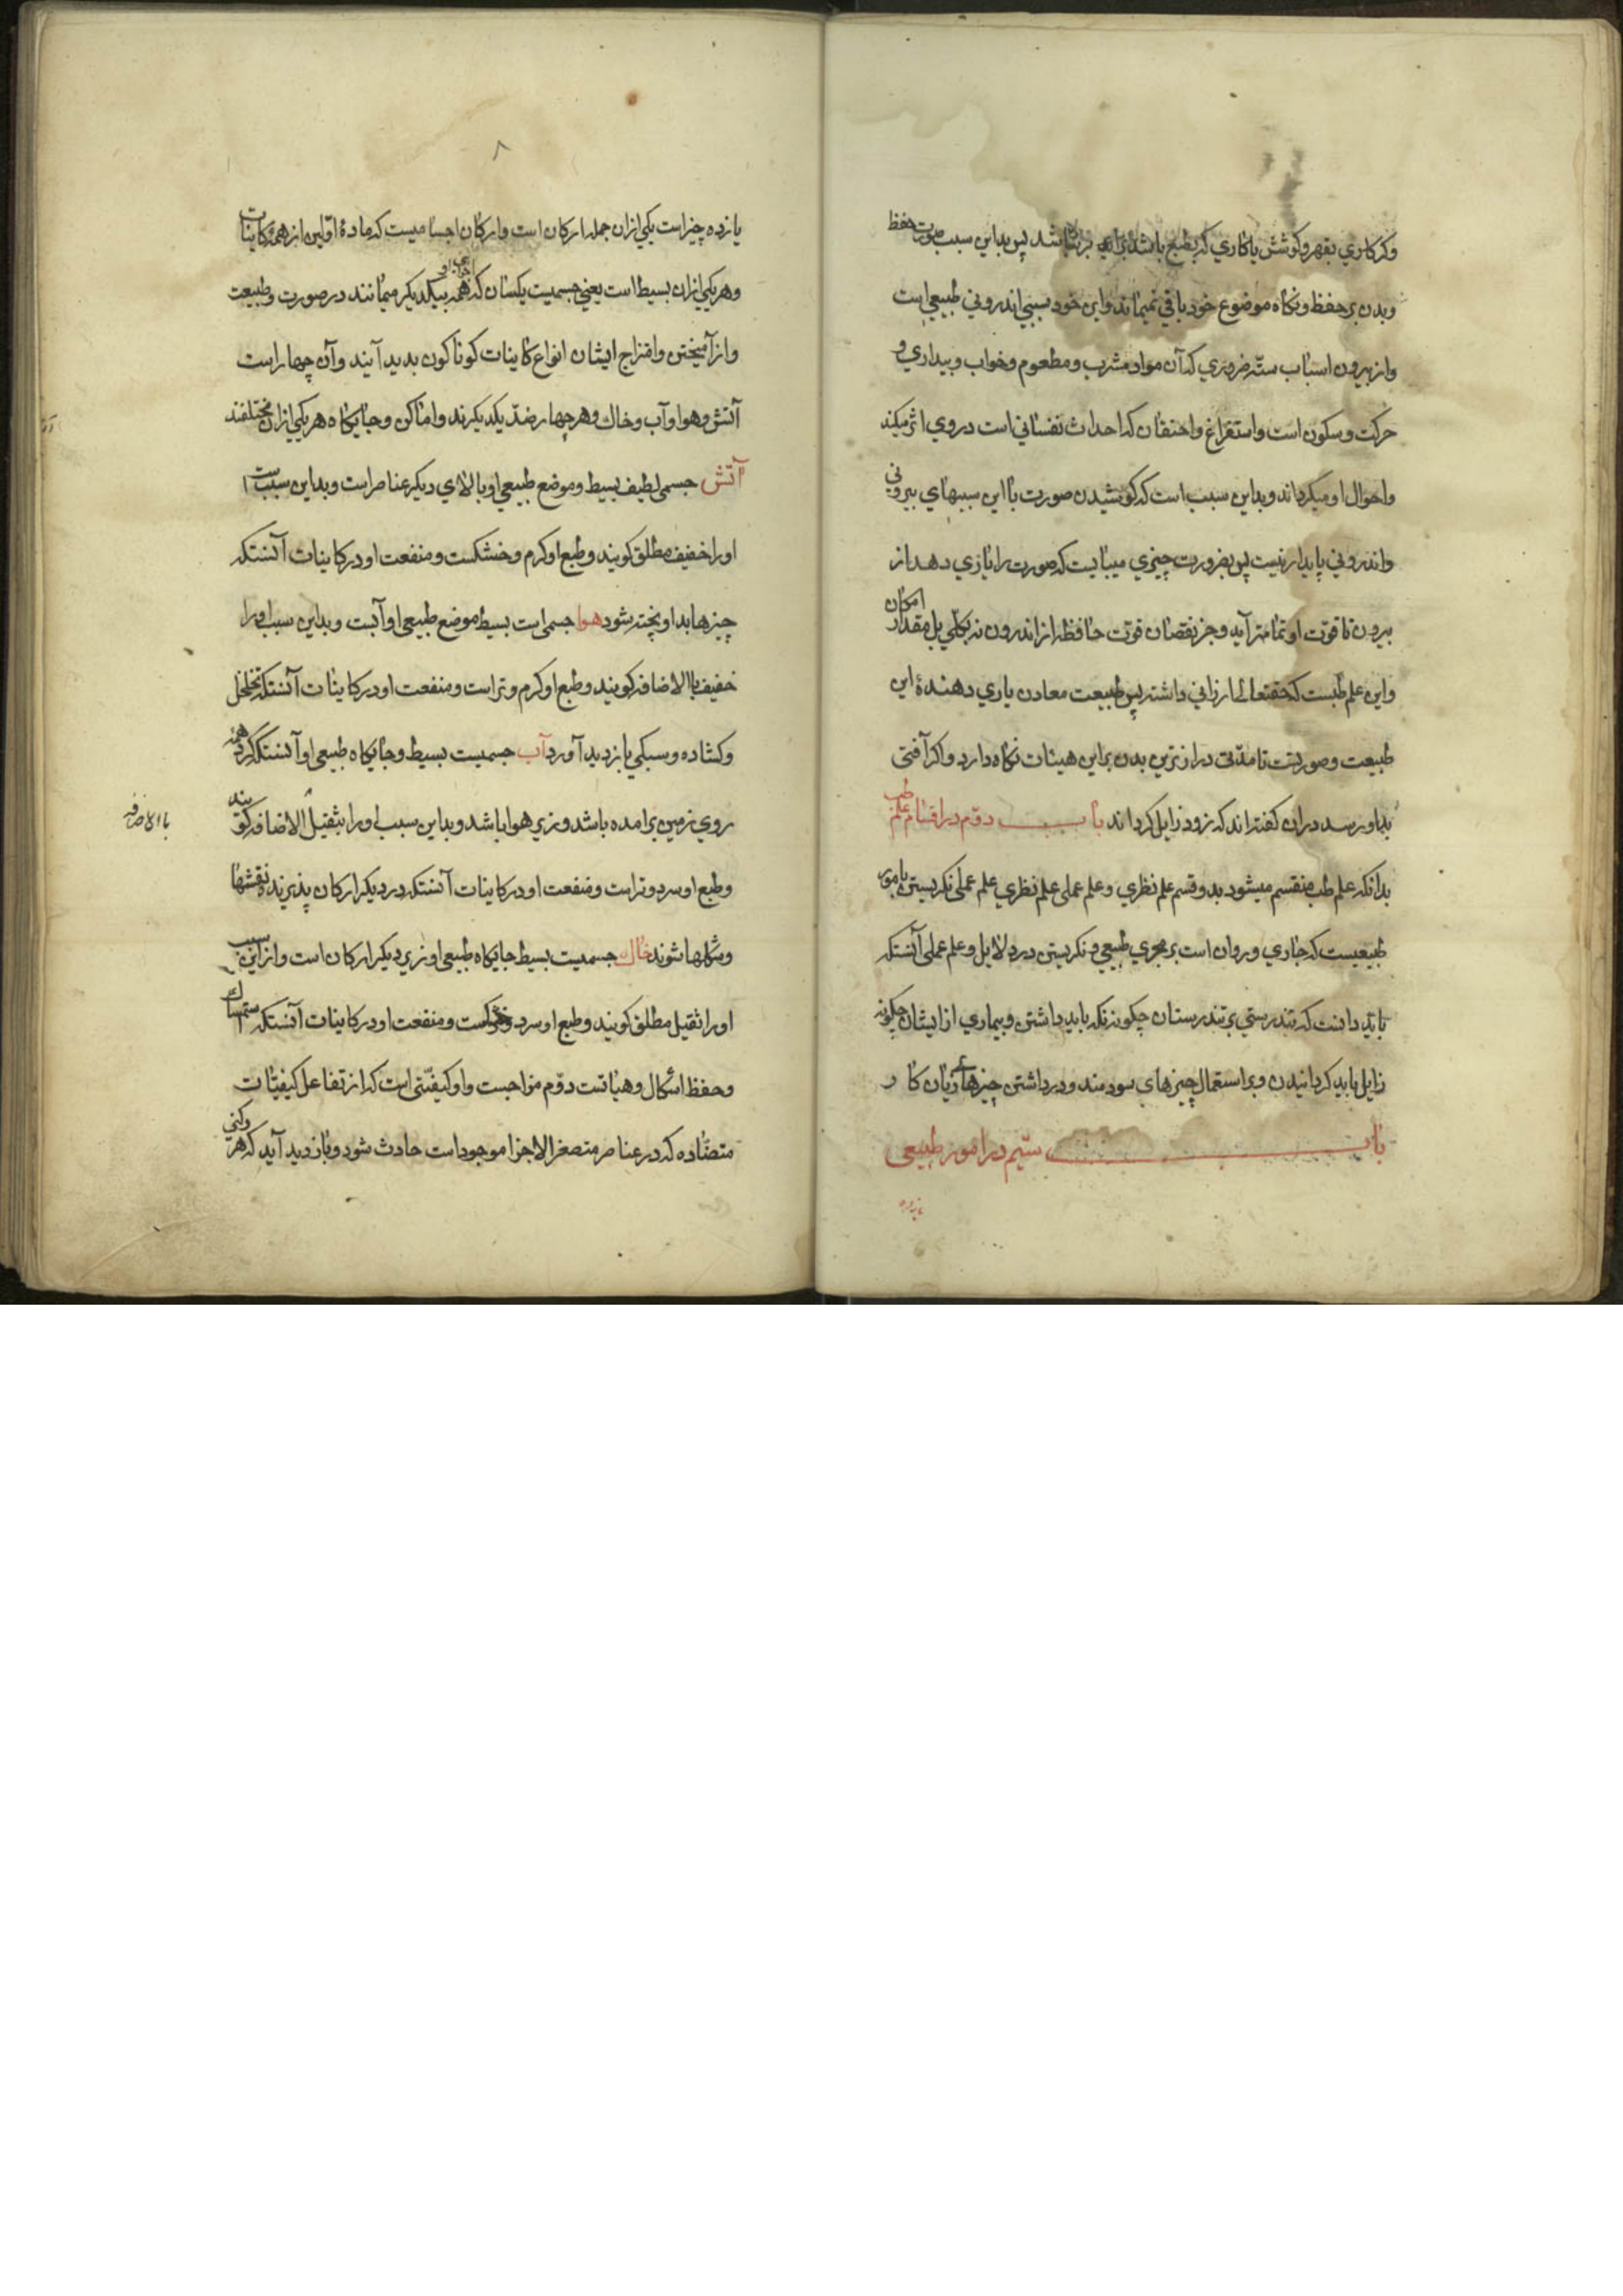 وکر کاری بقهر و کوشش با کاری که بطبع باشد برابر نباشد پس بداین سبب صورت حفظ
وبدن بر حفظ و نکاه موضوع خود باقی نمیماند واین خود سببی اندرونی طبیعی است
واز بیرون اسباب ستّه ضروری که آن مواد مشرب و مطعوم وخواب وبیداری و
حرکت وسکون است واستفراغ واحتقان که احداث نفسانی است در وی اثر میکند
واحوال او میکرداند وبداین سبب است که کوشیدن صورت با این سببهای بیرونی
واندرونی پایدار نیست پس بضرورت چیزی میبایست که صورت را یازی دهد از
بیرون تا قوّت او تمامتر آید وجز نقصان قوّت حافظه از اندرون نه بکلّی بل مقدار امکان
واین علم طبست که حقتعالی ارزانی داشته پس طبیعت معادن یاری دهندۀ این
طبیعت وصورتست تا مدّتی درازترین بدن براین هیئات نکاه دارد واکر آفتی
بداو رسد دران کفته اند که زود زایل کرداند باب دوّم در اقسام علم طب
بدانکه علم طب منقسم میشود بدو قسم علم نظری وعلم عملی علم نظری علم عملی نکریستن بامور
طبیعیست که جاری وروان است بر مجری طبیعی ونکریستن در دلایل وعلم عملی آنستکه
باید دانست که تندرستی بر تندرستان چکونه نکه باید داشتن وبیماری از ایشان چکونه
زایل باید کردانیدن وبر استعمال چیزهای سودمند ودور داشتن چیزهای زیان کار
باب سیّم در امور طبیعی
یازده
۸
یازده چیز است یکی ازان جمله ارکان است وارکان اجسامیست که مادۀ اوّلین از همه کاینات
وهر یکی ازان بسیط است یعنی جسمیست یکسان که همه اجزای او بیکدیکر میمانند در صورت وطبیعت
واز آمیختن وامتزاج ایشان انواع کاینات کوناکون بدید آیند وآن چهار است
آتش وهوا وآب وخاك وهر چهار ضدّ یکدیکرند واماکن وجایکاه هر یکی ازان مختلفند
آتش جسمی لطیف بسیط وموضع طبیعی او بالاای دیکر عناصر است وبداین سبب است
اورا خفیف مطلق کویند وطبع او کرم وخشکست ومنفعت او در کاینات آنستکه
چیزها بداو پخته شود هوا جسمی است بسیط موضع طبیعی او آبست وبداین سبب اورا
خفیف باالاضافه کویند وطبع او کرم وتر است ومنفعت او در کاینات آنستکه تخلخل
وکشاده وسبکی باز دید آورد آب جسمیست بسیط وجایکاه طبیعی او آنستکه کرد همه
روی زمین برامده باشد وزیر هوا باشد وبداین سبب اورا بثقیل الاضافه کویند
باالاضافه
وطبع او سرد وتر است ومنفعت او در کاینات آنستکه در دیکر ارکان پذیرنده نقشها
وشکلها شوند خاك جسمیست بسیط جایکاه طبیعی او زیر دیکر ارکان است واز این سبب
اورا ثقیل مطلق کویند وطبع او سرد وخشکست ومنفعت او در کاینات آنستکه استمساك
وحفظ اشکال وهیاتست دوّم مزاجست واو کیفیّتی است که از تفاعل کیفیّات
متضادّه که در عناصر متصغر الاجزا موجود است حادث شود وباز دید آید که هر رکنی